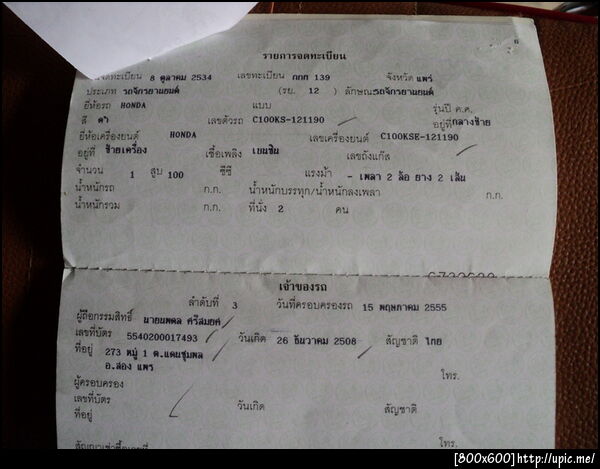 รายการจดทะเบียน
วันจดทะเบียน 8 ตุลาคม 2534 เลขทะเบียน กกก 139 จังหวัด แพร่
ประเภท รถจักรยานยนต์ (รย. 12 ) ลักษณะรถจักรยานยนต์
ยี่ห้อรถ HONDA แบบ รุ่นปี ค.ศ.
สี ดำ เลขตัวรถ C100KS-121190 อยู่ที่กลางซ้าย
ยี่ห้อเครื่องยนต์ HONDA เลขเครื่องยนต์ C100KSE-121190
อยู่ที่ ซ้ายเครื่อง เชื้อเพลิง เบนซิน เลขถังแก๊ส
จำนวน 1 สูบ 100 ซีซี แรงม้า - เพลา 2 ล้อ ยาง 2 เส้น
น้ำหนักรถ ก.ก. น้ำหนักบรรทุก/น้ำหนักลงเพลา ก.ก.
น้ำหนักรวม ก.ก. ที่นั่ง 2 คน
เจ้าของรถ
ลำดับที่ 3 วันที่ครอบครองรถ 15 พฤษภาคม 2555
ผู้ถือกรรมสิทธิ์ นายนพดล ศรีสมยศ
เลขที่บัตร 5540200017493 วันเกิด 26 ธันวาคม 2508 สัญชาติ ไทย
ที่อยู่ 273 หมู่ 1 ต.แดนชุมพล
อ.สอง แพร่ โทร.
ผู้ครอบครอง
เลขที่บัตร วันเกิด สัญชาติ
ที่อยู่
โทร.
[800x600]http://upic.me/